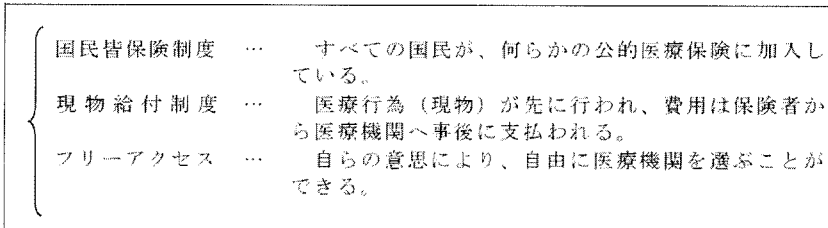 国民皆保険制度 … すべての国民が、何らかの公的医療保険に加入し
ている。
現物給付制度 … 医療行為（現物）が先に行われ、費用は保険者か
ら医療機関へ事後に支払われる。
フリーアクセス … 自らの意思により、自由に医療機関を選ぶことが
できる。